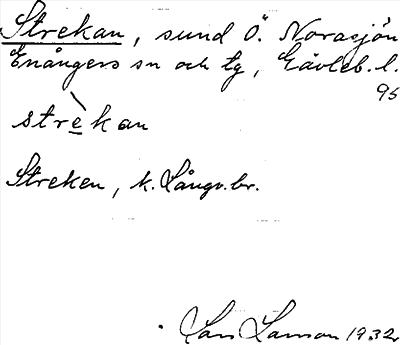 Strekan, sund Ö. Norasjön
Enångers sn och tg, Gävleb. l.
95
strèkan
Streken, k. Långv. br.
Lars Larsson 1932